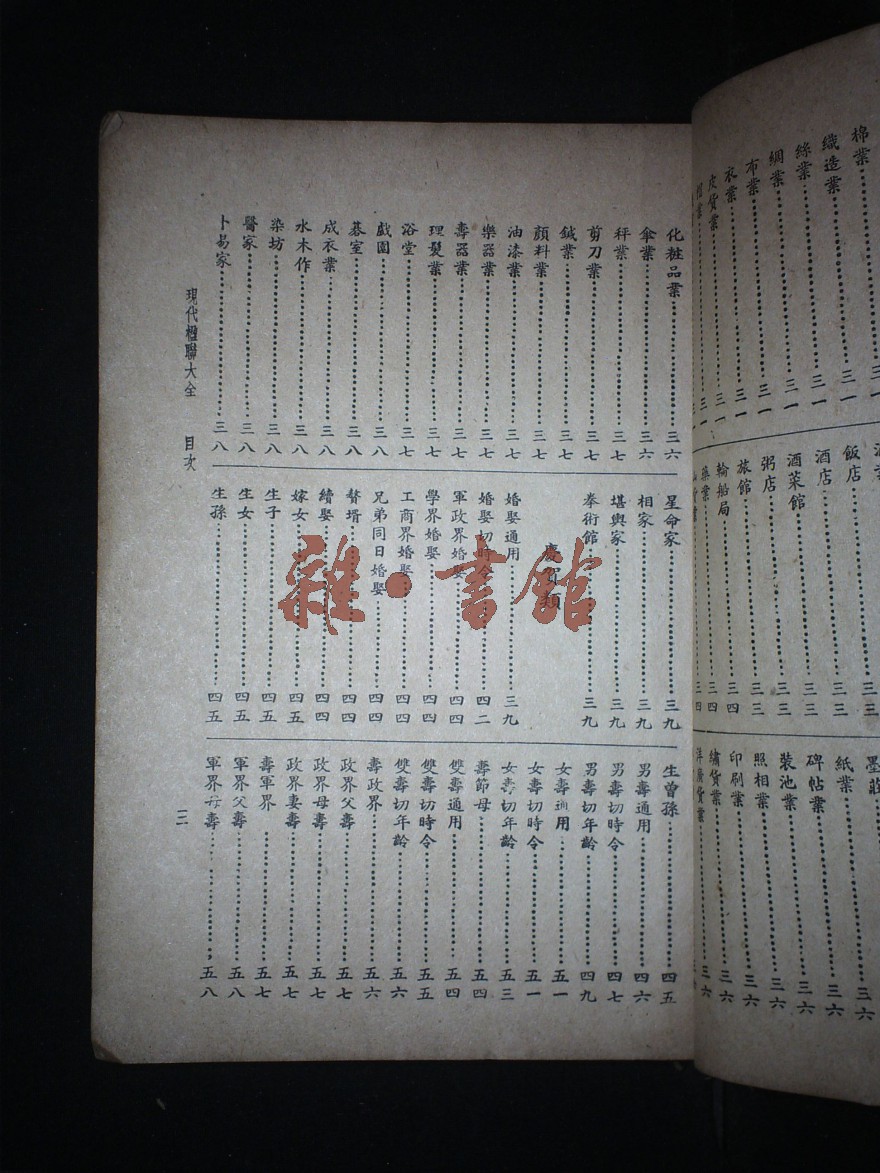 棉業 三一
織造業 三一
絲業 三一
綢業 三一
布業 三一
衣業 三一
皮貨業 三一
飯店 三三
酒店 三三
酒菜館 三三
粥店 三三
旅館 三三
輪船局 三四
藥業 三四
墨莊
紙業 三六
碑帖業 三六
裝池業 三六
照相業 三六
印刷業 三六
繡貨業 三六
洋廣貨業 三六
化粧品業 三六
傘業 三六
秤業 三七
剪刀業 三七
鍼業 三七
顏料業 三七
油漆業 三七
樂器業 三七
壽器業 三七
理髮業 三七
浴堂 三七
戲園 三八
棊室 三八
成衣業 三八
水木作 三八
染坊 三八
醫家 三八
卜易家 三八
星命家 三九
相家 三九
堪輿家 三九
拳術館 三九
慶賀類
婚娶通用 三九
婚娶切時令 四二
軍政界婚娶 四四
學界婚娶 四四
工商界婚娶 四四
兄弟同日婚娶 四四
贅壻 四四
續娶 四四
嫁女 四五
生子 四五
生女 四五
生孫 四五
生曾孫 四五
男壽通用 四六
男壽切時令 四七
男壽切年齡 四九
女壽通用 五一
女壽切時令 五一
女壽切年齡 五三
壽節母 五四
雙壽通用 五四
雙壽切時令 五五
雙壽切年齡 五六
壽政界 五六
政界父壽 五七
政界母壽 五七
政界妻壽 五七
壽軍界 五七
軍界父壽 五八
軍界母壽 五八
現代楹聯大全 目次 三
雜·書館